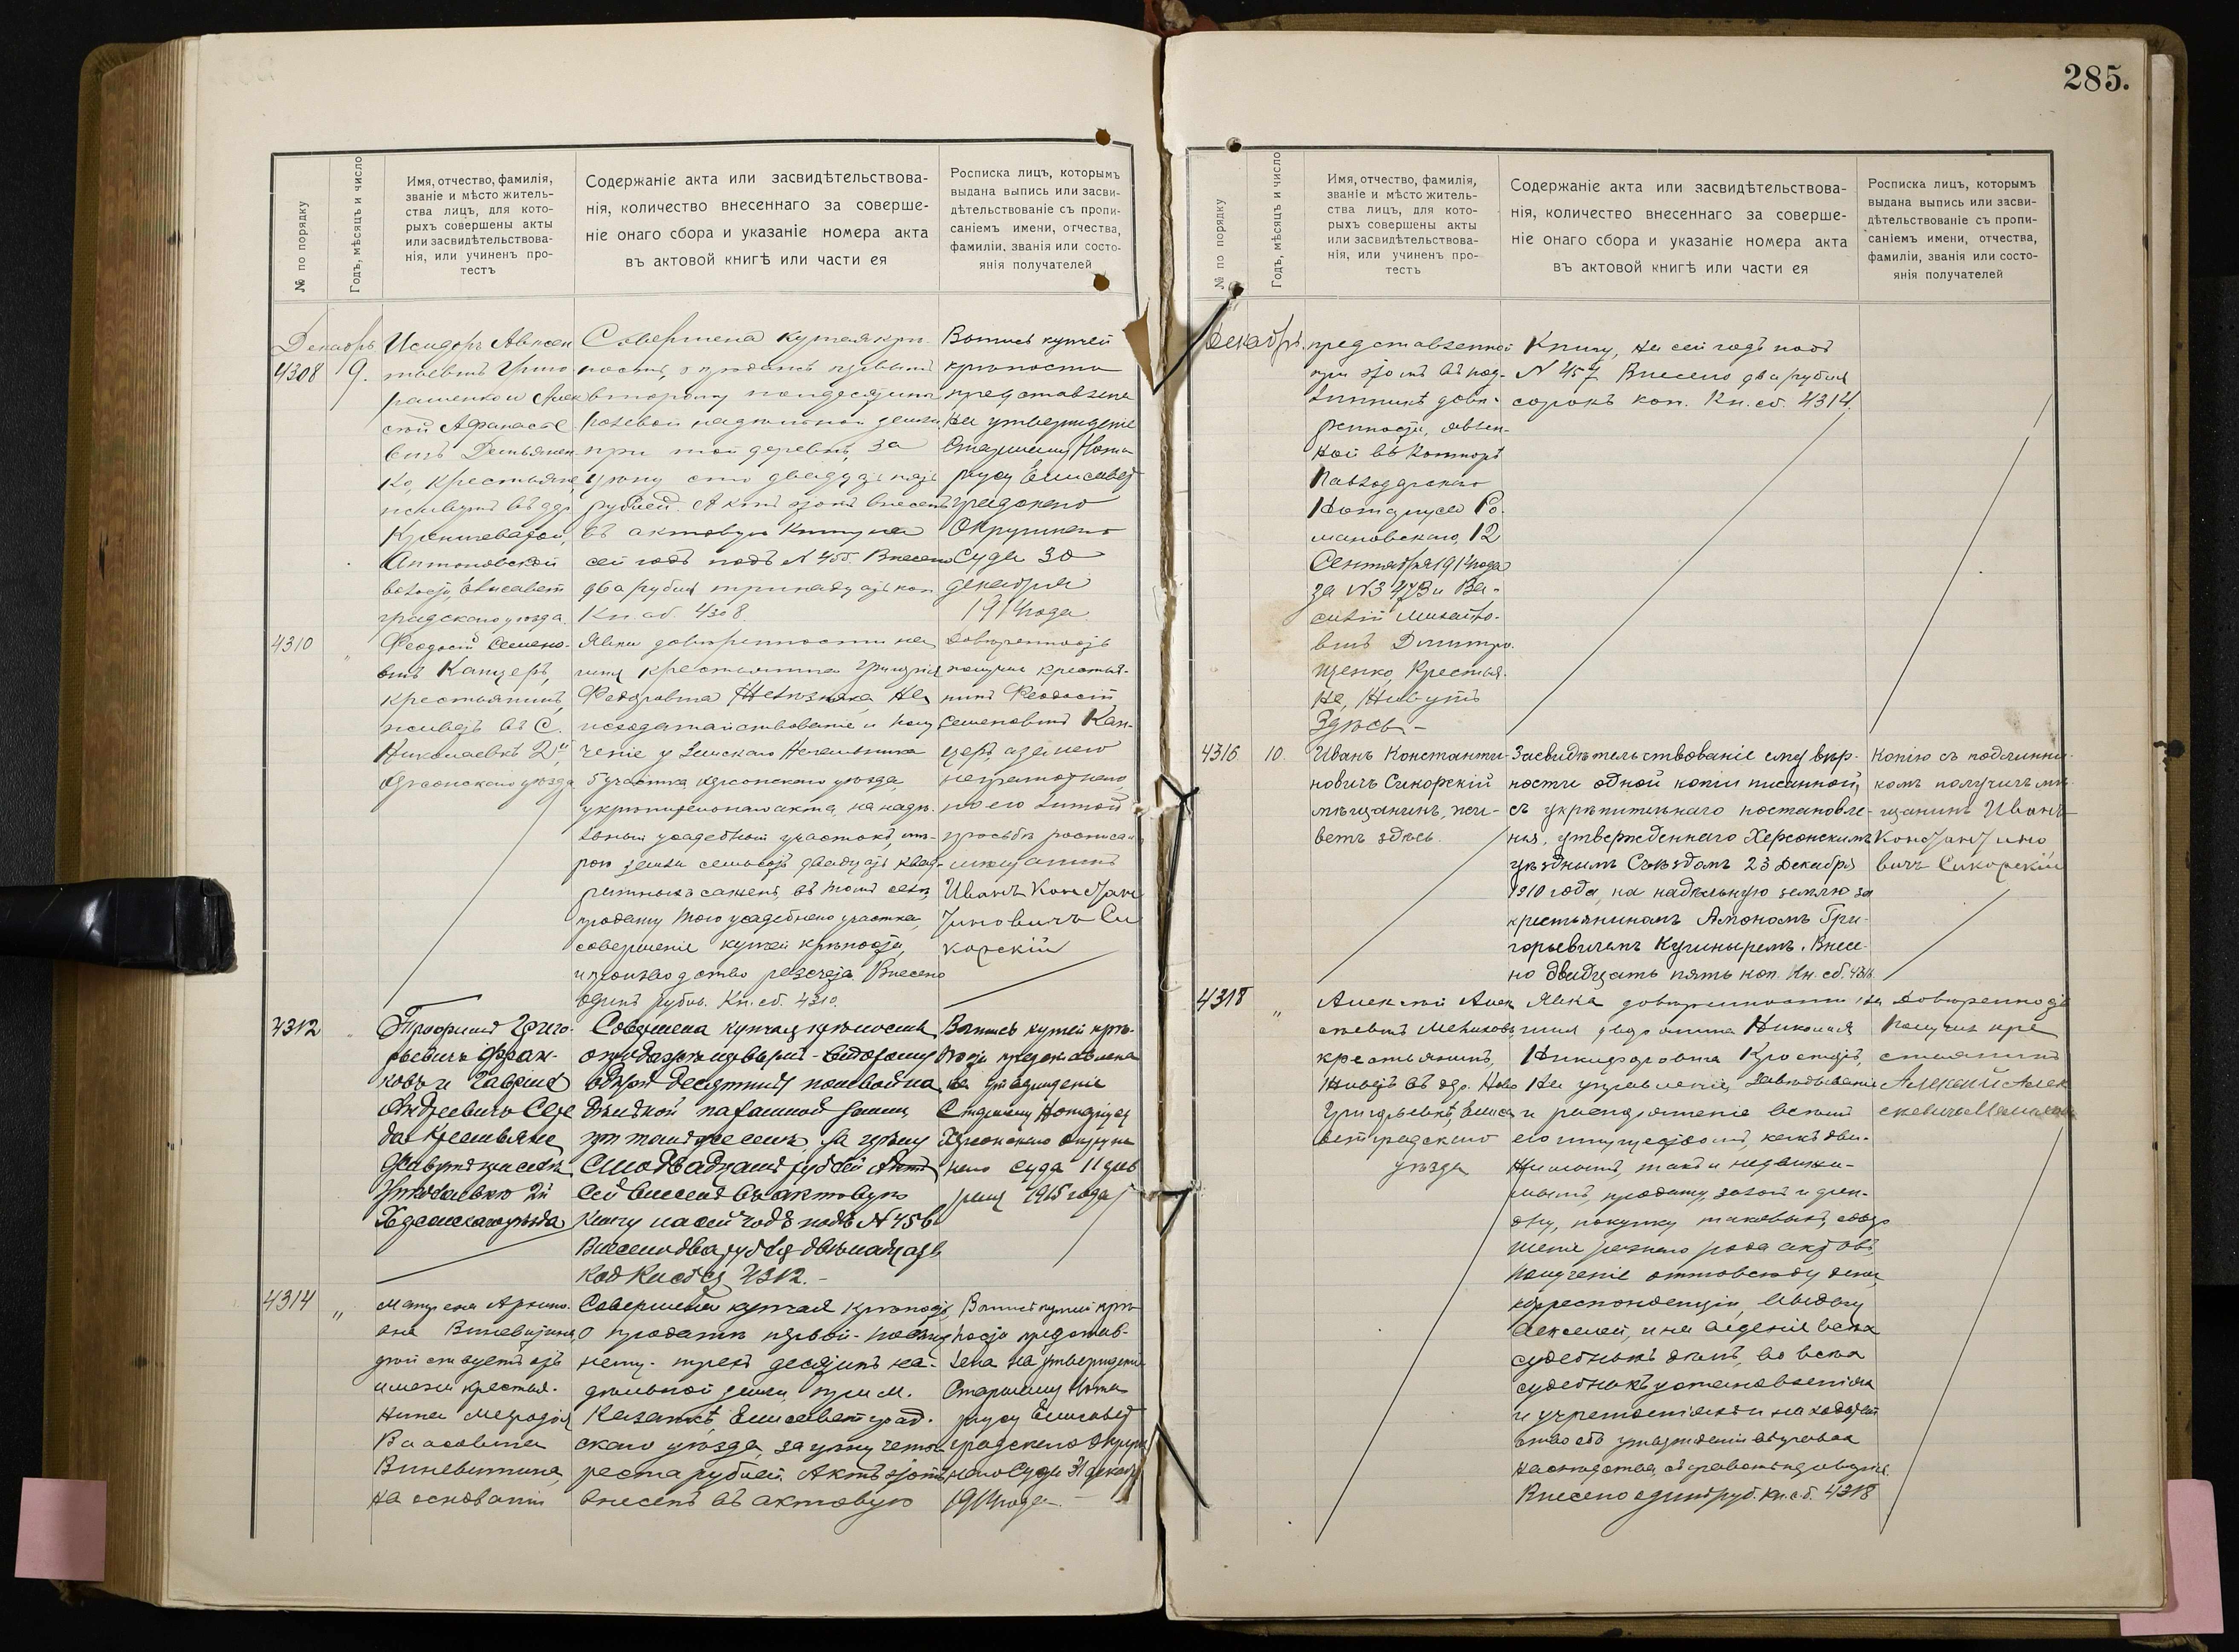 285.
№ по порядку
Годъ, мѣсяцъ и число
Имя, отчество, фамилія,
званіе и мѣсто житель-
ства лицъ, для кото-
рыхъ совершены акты
или засвидѣтельствова-
нія, или учиненъ про-
тестъ
Содержаніе акта или засвидѣтельствова-
нія, количество внесеннаго за соверше-
ніе онаго сбора и указаніе номера акта
въ актовой книгѣ или части ея
Росписка лицъ, которымъ
выдана выпись или засви-
дѣтельствованіе съ пропи-
саніемъ имени, отчества,
фамиліи, званія или состо-
янія получателей
Декабрь
4308
9.
Исидоръ Авксен
тьевичъ
Алек
сѣй Афанасье
вичъ Демьянен
ко, крестьяне,
живутъ въ дер.
Антоновской
волости, Елисавет
градскаго уѣзда.
Совершена купчая крѣ
пость, о продажѣ первымъ
второму
полевой надѣльной земли
при той деревнѣ, за
цѣну сто двадцать пять
рублей. Актъ этотъ внесенъ
въ актовую книгу на
сей годъ подъ № 455. Внесено
два рубля тринадцать коп.
Кн. сб. 4308.
Выпись купчей
крѣпости
представлена
на утвержденіе
Старшему Нота
ріусу Елисавет
градскаго
Окружнаго
Суда 30
декабря
1914 года
4310
"
Феодосій Семено-
вичъ Канцеръ,
крестьянинъ,
живетъ въ с.
Николаевкѣ 2й,
Херсонскаго уѣзда
Явка довѣренности на
имя крестьянина Григорія
Федоровича на
исходатайствованіе и полу
ченіе у Земскаго Начальника
5 участка Херсонскаго уѣзда,
укрѣпительнаго акта, на надѣ-
льный усадебный участокъ, мѣ-
рою земли семьсотъ двадцать квад-
ратныхъ сажень, въ томъ селѣ,
продажу того усадебнаго участка,
совершеніе купчей крѣпости,
и производство разсчета. Внесено
одинъ рубль. Кн. сб. 4310.
Довѣренность
получилъ крестья-
нинъ Феодосій
Семеновичъ Кан-
церъ, а за него
неграмотнаго,
по его личной
просьбѣ росписал
мѣщанинъ
Иванъ Констан
тиновичъ Си
корскій
4312
"
Трофимъ Григо-
рьевичъ
ковъ и Гавріилъ
Андреевичъ
крестьяне
живутъ въ селѣ
Николаевкѣ 2й
Херсонскаго уѣзда
Совершена купчая крѣпость
о продажѣ первымъ - второму
одной десятины полевой на
дѣльной пахатной земли
при томъ же селѣ, за цѣну
сто двадцать рублей. Актъ
сей внесенъ въ актовую
книгу на сей годъ подъ № 456
Внесено два рубля двѣнадцать
коп. Кн. сб. 4312. -
Выпись купчей крѣ-
пости представлена
на утвержденіе
Старшему Нотаріусу
Херсонскаго Окруж
наго суда 11 фев
раля 1915 года
4314
"
Матрена Архипо-
вна Виневитина,
дѣйствуетъ отъ
имени крестья-
нина Мефодія
Власовича
Виневитина,
на основаніи
Совершена купчая крѣпость
о продажѣ первой - послѣд
нему - трехъ десятинъ на-
дѣльной земли, при м.
Казанкѣ, Елисаветград-
скаго уѣзда, за цѣну четы
реста рублей. Актъ этотъ
внесенъ въ актовую
Выпись купчей крѣ
пости представ-
лена на утвержденіе
Старшему Нота
ріусу Елисавет
градскаго Окруж
наго Суда 31 декабря
1914 года. -
№ по порядку
Годъ, мѣсяцъ и число
Имя, отчество, фамилія,
званіе и мѣсто житель-
ства лицъ, для кото-
рыхъ совершены акты
или засвидѣтельствова-
нія, или учиненъ про-
тестъ
Содержаніе акта или засвидѣтельствова-
нія, количество внесеннаго за соверше-
ніе онаго сбора и указаніе номера акта
въ актовой книгѣ или части ея
Росписка лицъ, которымъ
выдана выпись или засви-
дѣтельствованіе съ пропи-
саніемъ имени, отчества,
фамиліи, званія или состо-
янія получателей
Декабрь.
представленной
при этомъ въ под-
линникѣ довѣ-
ренности, явлен-
ной въ Конторѣ
Павлодарскаго
Нотаріуса Ро-
мановскаго, 12
Сентября 1914 года
за № и Ва-
силій Михайло-
вичъ Дмитри-
щенко, крестья-
не, живутъ
здѣсь -
книгу, на сей годъ подъ
№ 457 Внесено два рубля
сорокъ коп. Кн. сб. 4314.
4316
10.
Иванъ Константи-
новичъ Сикорскій
мѣщанинъ, жи-
ветъ здѣсь.
Засвидѣтельствованіе вѣр-
ности одной копіи писанной,
съ укрѣпительнаго постановле-
нія, утвержденнаго Херсонскимъ
уѣзднымъ Съѣздомъ 23 Декабря
1910 года, на надѣльную землю за
крестьяниномъ Гри-
горьевичемъ Кушныремъ. Внесе-
но двадцать пять коп. Кн. сб. 4316.
Копію съ подлинни-
комъ получилъ мѣ-
щанинъ Иванъ
Константино
вичъ Сикорскій
4318
"
Алексѣй Алек
сѣевичъ
крестьянинъ,
живетъ въ дер. Ново
Григорьевкѣ, Елиса
ветградскаго
уѣзда
Явка довѣренности на
имя дворянина Николая
Никифоровича
на управленіе, завѣдываніе
и распоряженіе всѣмъ
его имуществомъ, какъ дви-
жимымъ, такъ и недвижи-
мымъ, продажу, залогъ и арен-
ду, покупку таковыхъ, совер
шеніе разнаго рода актовъ,
полученіе отовсюду денегъ,
корреспонденціи, выдачу
векселей, и на веденіе всѣхъ
судебныхъ дѣлъ, во всѣхъ
судебныхъ установленіяхъ
и учрежденіяхъ и ходатай
ство объ утвержденіи въ правахъ
наслѣдства, съ правомъ передовѣрія.
Внесено одинъ руб. Кн. сб. 4318
Довѣренность
получилъ кре
стьянинъ
Алексѣй Алек